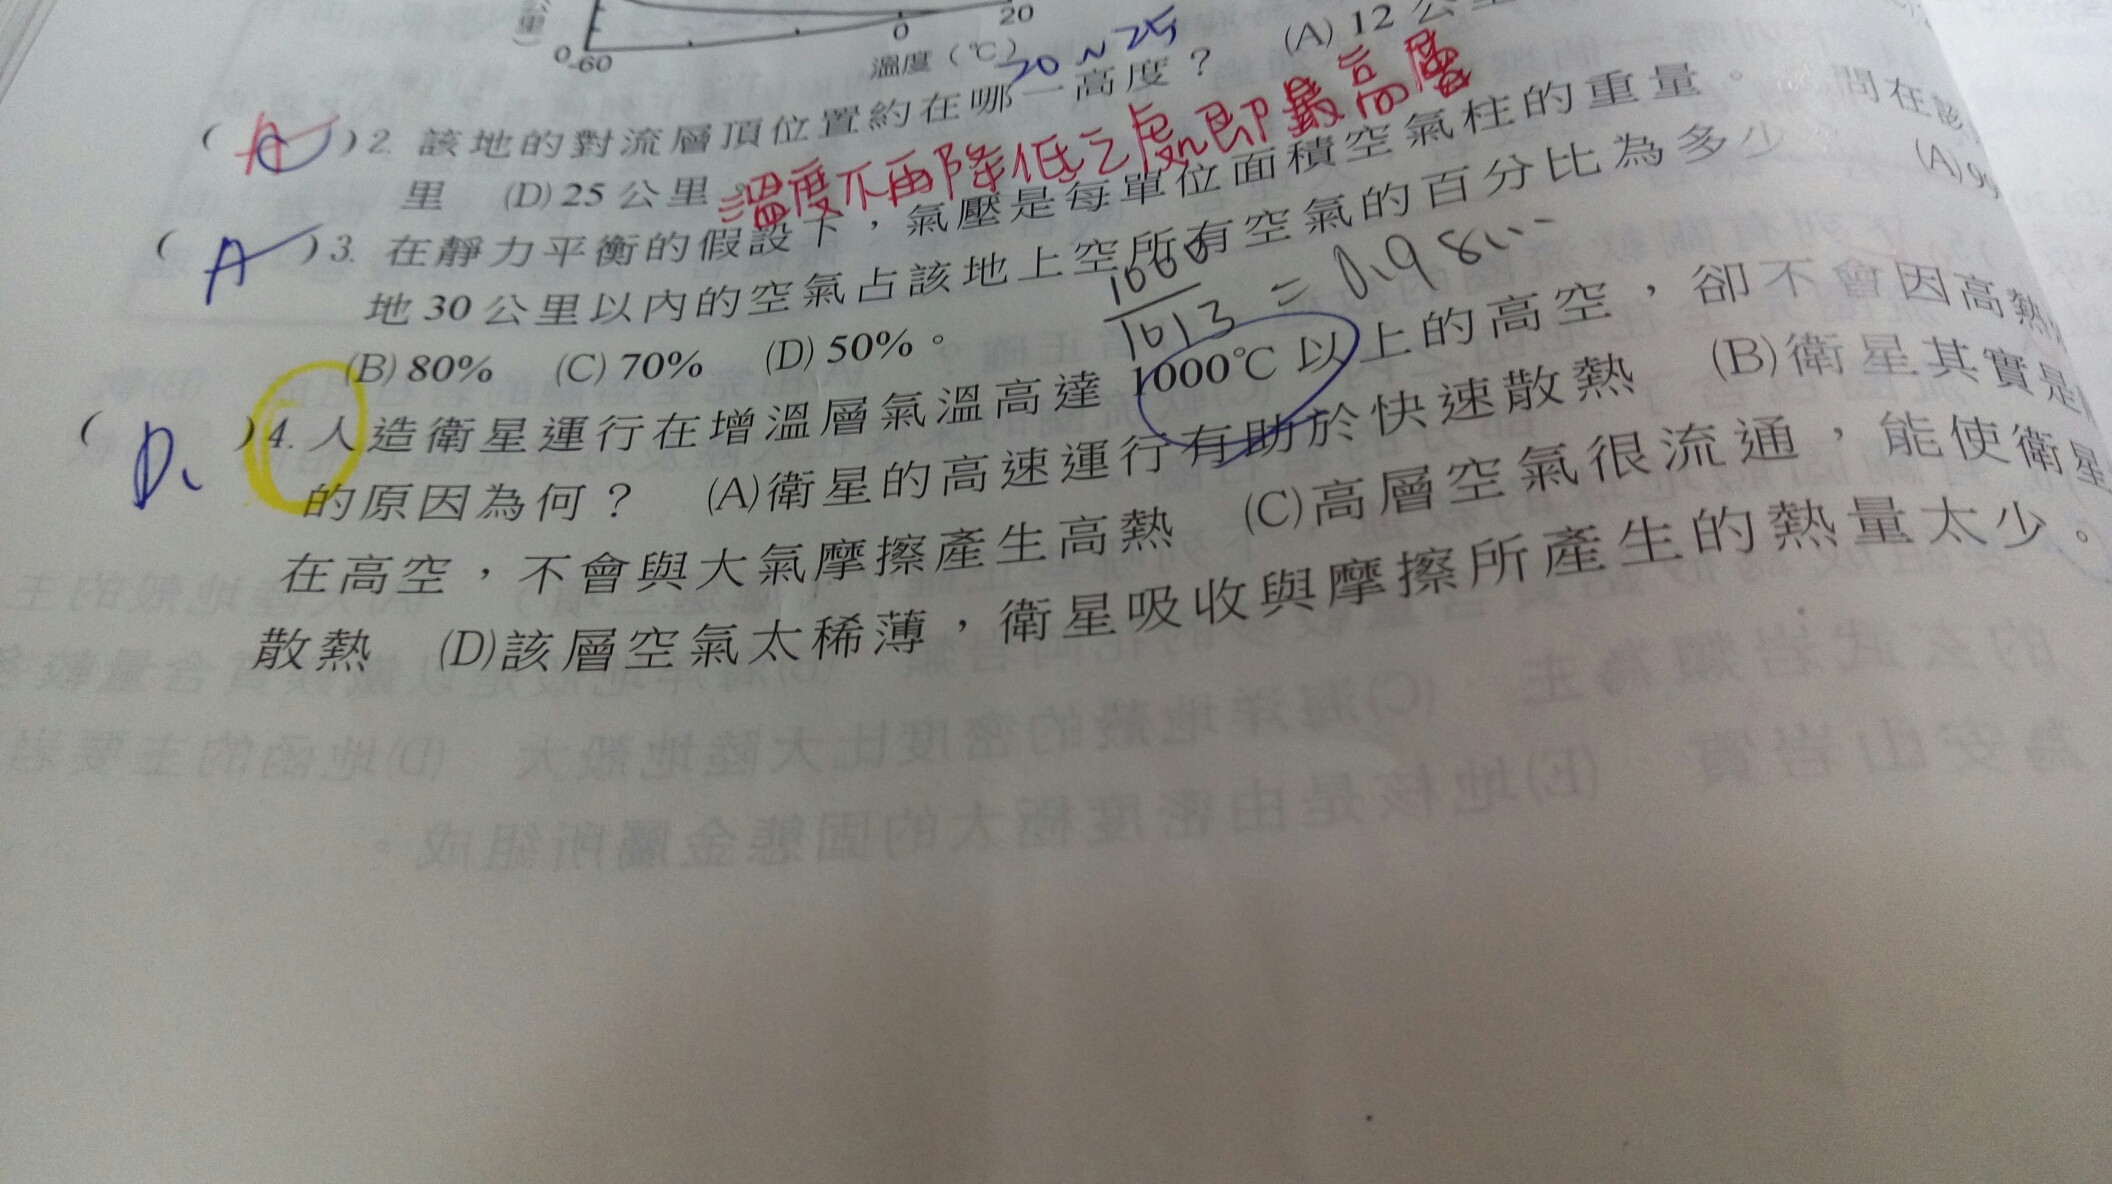 0
-60
0
20
溫度（℃）
20~25
(A)2. 該地的對流層頂位置約在哪一高度？ (A) 12 公里
里 (D) 25 公里。
溫度不再降低之處即最高層
(A)3. 在靜力平衡的假設下，氣壓是每單位面積空氣柱的重量。 問在該
地 30 公里以內的空氣占該地上空所有空氣的百分比為多少 (A) 99
(B) 80% (C) 70% (D) 50%。
1000/1013 = 0.98...
(D.)4. 人造衛星運行在增溫層氣溫高達 1000℃ 以上的高空，卻不會因高熱
的原因為何？ (A)衛星的高速運行有助於快速散熱 (B)衛星其實是
在高空，不會與大氣摩擦產生高熱 (C)高層空氣很流通，能使衛星
散熱 (D)該層空氣太稀薄，衛星吸收與摩擦所產生的熱量太少。